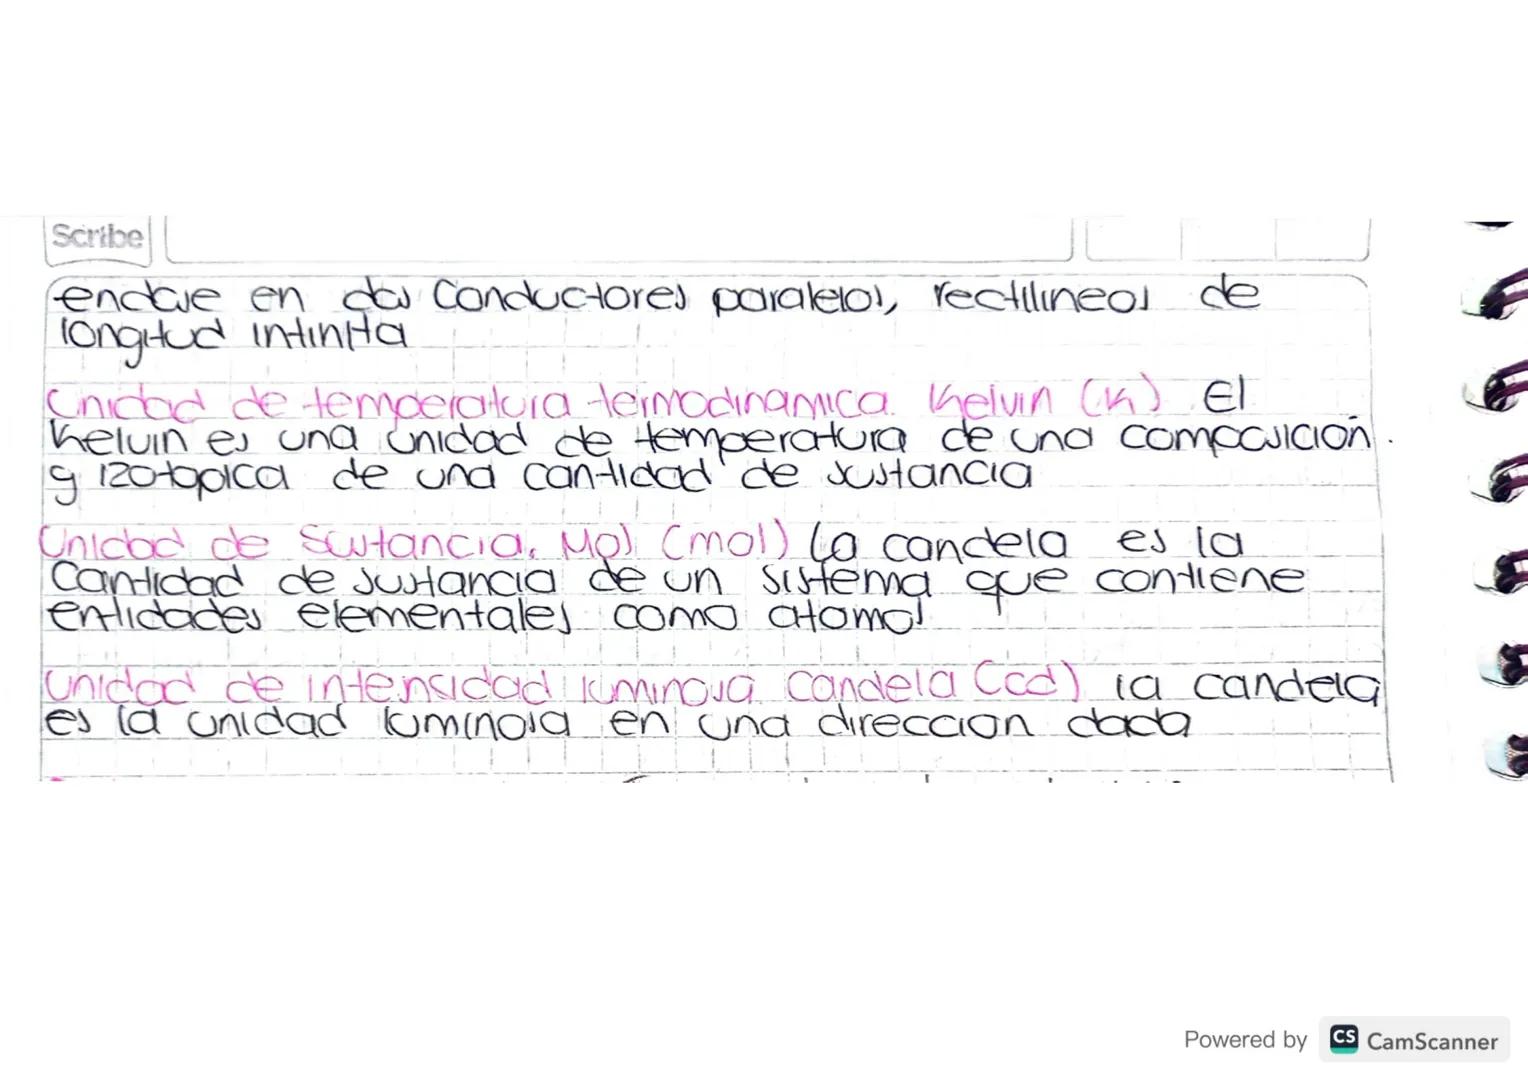 Scribe
endose en dos Conductores paralelos, rectilineos de
longitud infinita
Unidad de temperatura termodinamica. Kelvin (K) El
Kelvin es una unidad de temperatura de una composición.
y izotopica de una cantidad de sustancia
Unidad de Sustancia. Mol (mol) La candela es la
Cantidad de sustancia de un sistema que contiene
entidades elementales como atomos
Unidad de intensidad luminosa candela (cd) la candela
es la unidad luminosa en una direccion dada
Powered by CS CamScanner